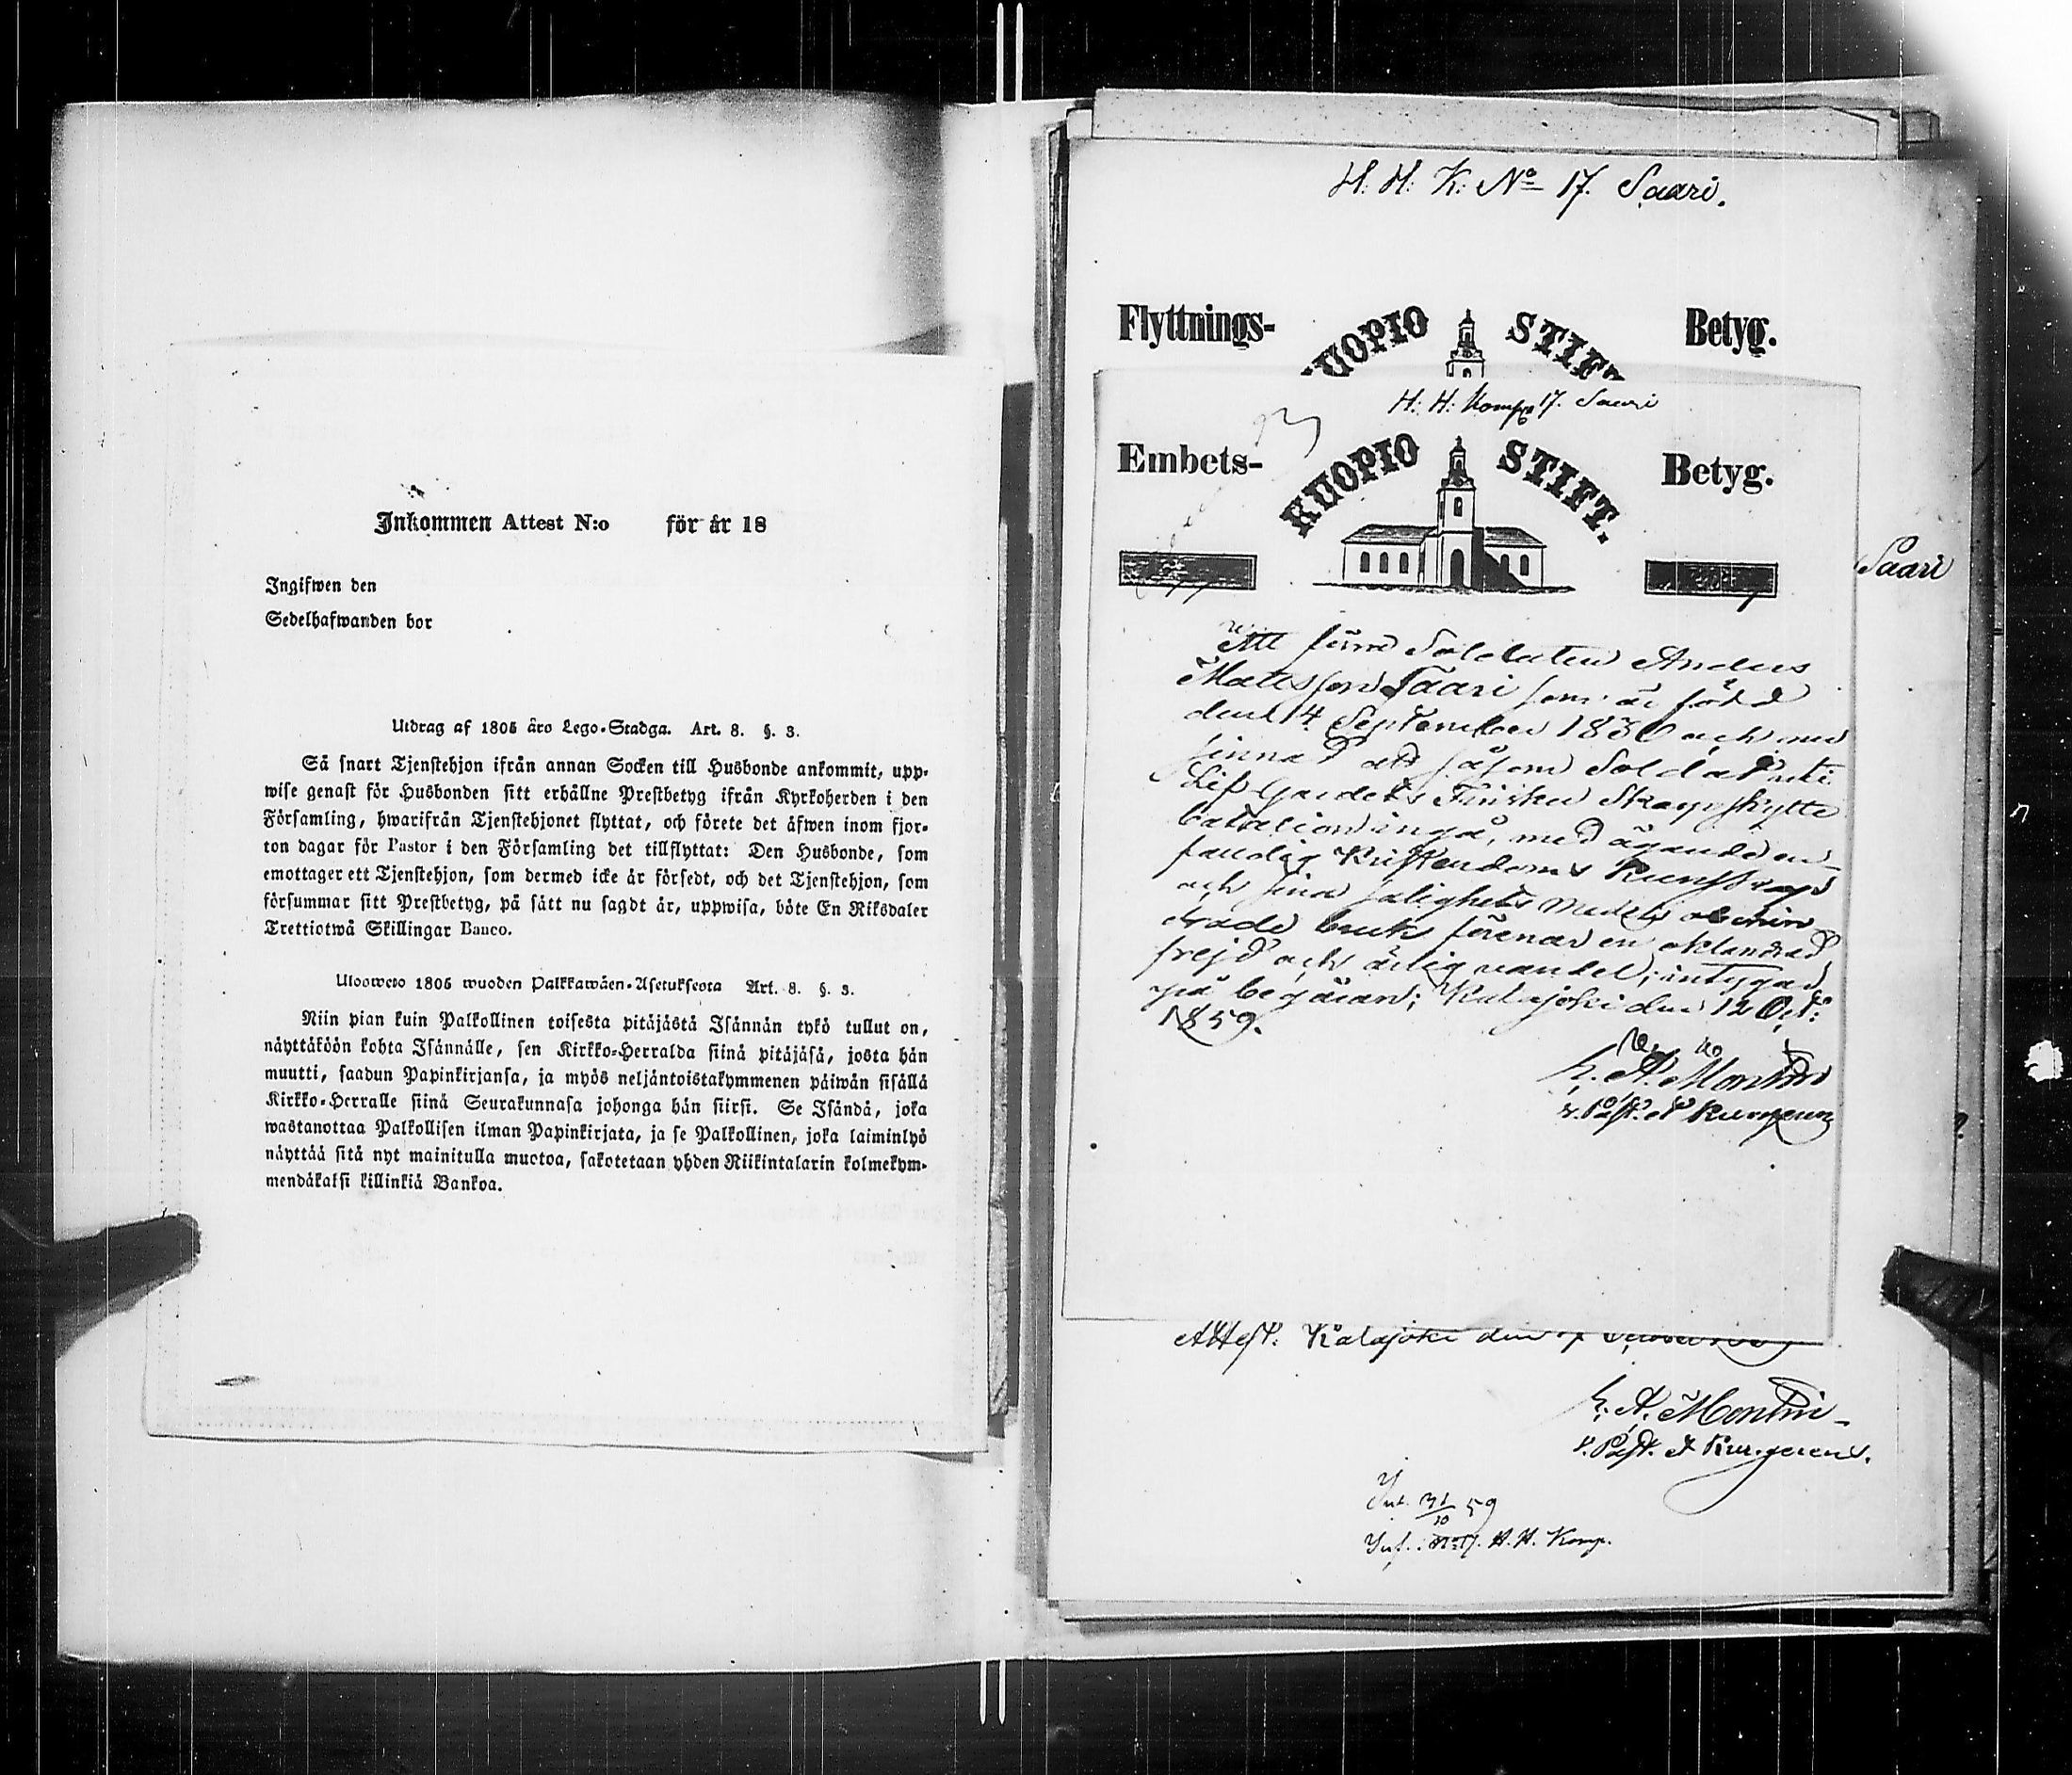 Inkommen Attest N:o för år 18
Ingifwen den
Sedelhafwanden bor
Utdrag af 1805 års Lego-Stadga. Art. 8. §. 3.
Så snart Tjenstehjon ifrån annan Socken till Husbonde ankommit, upp-
wise genast för Husbonden sitt erhållne Prestbetyg ifrån Kyrkoherden i den
Församling, hwarifrån Tjenstehjonet flyttat, och förete det äfwen inom fjor-
ton dagar för Pastor i den Församling det tillflyttat: Den Husbonde, som
emottager ett Tjenstehjon, som dermed icke är försedt, och det Tjenstehjon, som
försummar sitt Prestbetyg, på sätt nu sagdt är, uppwisa, böte En Riksdaler
Trettiotwå Skillingar Banco.
Uloosweto 1805 wuoden Palkkawäen-Asetuksesta Art. 8. §. 3.
Niin pian kuin Palkollinen toisesta pitäjästä Isännän tykö tullut on,
näyttäköön kohta Isännälle, sen Kirkko-Herralda siinä pitäjäsä, josta hän
muutti, saadun Papinkirjansa, ja myös neljäntoistakymmenen päiwän sisällä
Kirkko-Herralle siinä Seurakunnasa johonga hän siirsi. Se Isändä, joka
wastanottaa Palkollisen ilman Papinkirjata, ja se Palkollinen, joka laiminlyö
näyttää sitä nyt mainitulla muotoa, sakotetaan yhden Riikintalarin kolmekym-
mendäkaksi killinkiä Bankoa.
H. H. K. No 17. Saari.
Flyttnings- KUOPIO STIFT Betyg.
H. H. Komp. 17. Saari
Embets- KUOPIO STIFT. Betyg.
Saari
Att förre Soldaten Anders
Matsson Saari som är född
den 14 September 1830 och nu
sinnad att såsom Soldat uti
Lif Gardets Finska Skarpskytte
bataljon ingå, med ägande en-
faldig Kristendoms Kunskap
och sina salighets medels obehin
drade bruk förenar en oklandrad
frejd och ärlig vandel; intygad
på begäran; Kalajoki den 12 Oct:
1859.
K. A. Montin
v. Past. et Kur. gerens
Attest. Kalajoki den
K. A. Montin
v. Past. et Kur. gerens.
Int. 31/10 59
Inf. No 17. H. H. Komp.